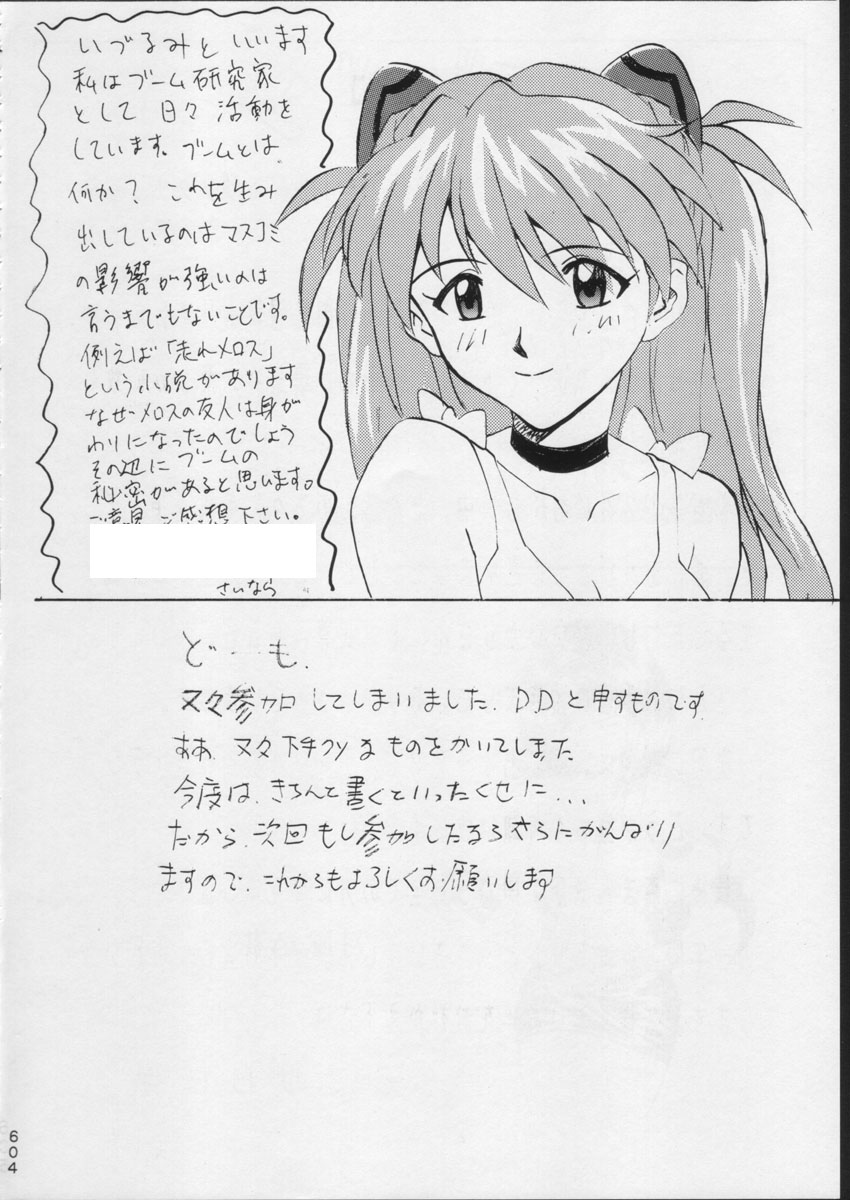 いづるみと いいます
私はブーム研究家
として 日々 活動を
しています。ブームとは
何か? これを生み
出しているのはマスコミ
の影響が強いのは
言うまでもないことです。
例えば「走れメロス」
という小説があります
なぜメロスの友人は身が
わりになったのでしょう
その辺にブームの
秘密があると思います。
ご意見 ご感想 下さい。
さいなら
ど……も.
又々参加してしまいました. D.Dと申すものです.
ああ、又々下手クソなものをかいてしまた
今度は、きちんと書くといったくせに...
だから、次回もし参加したるろさらにがんばり
ますので、これからもよろしくお願いします
604